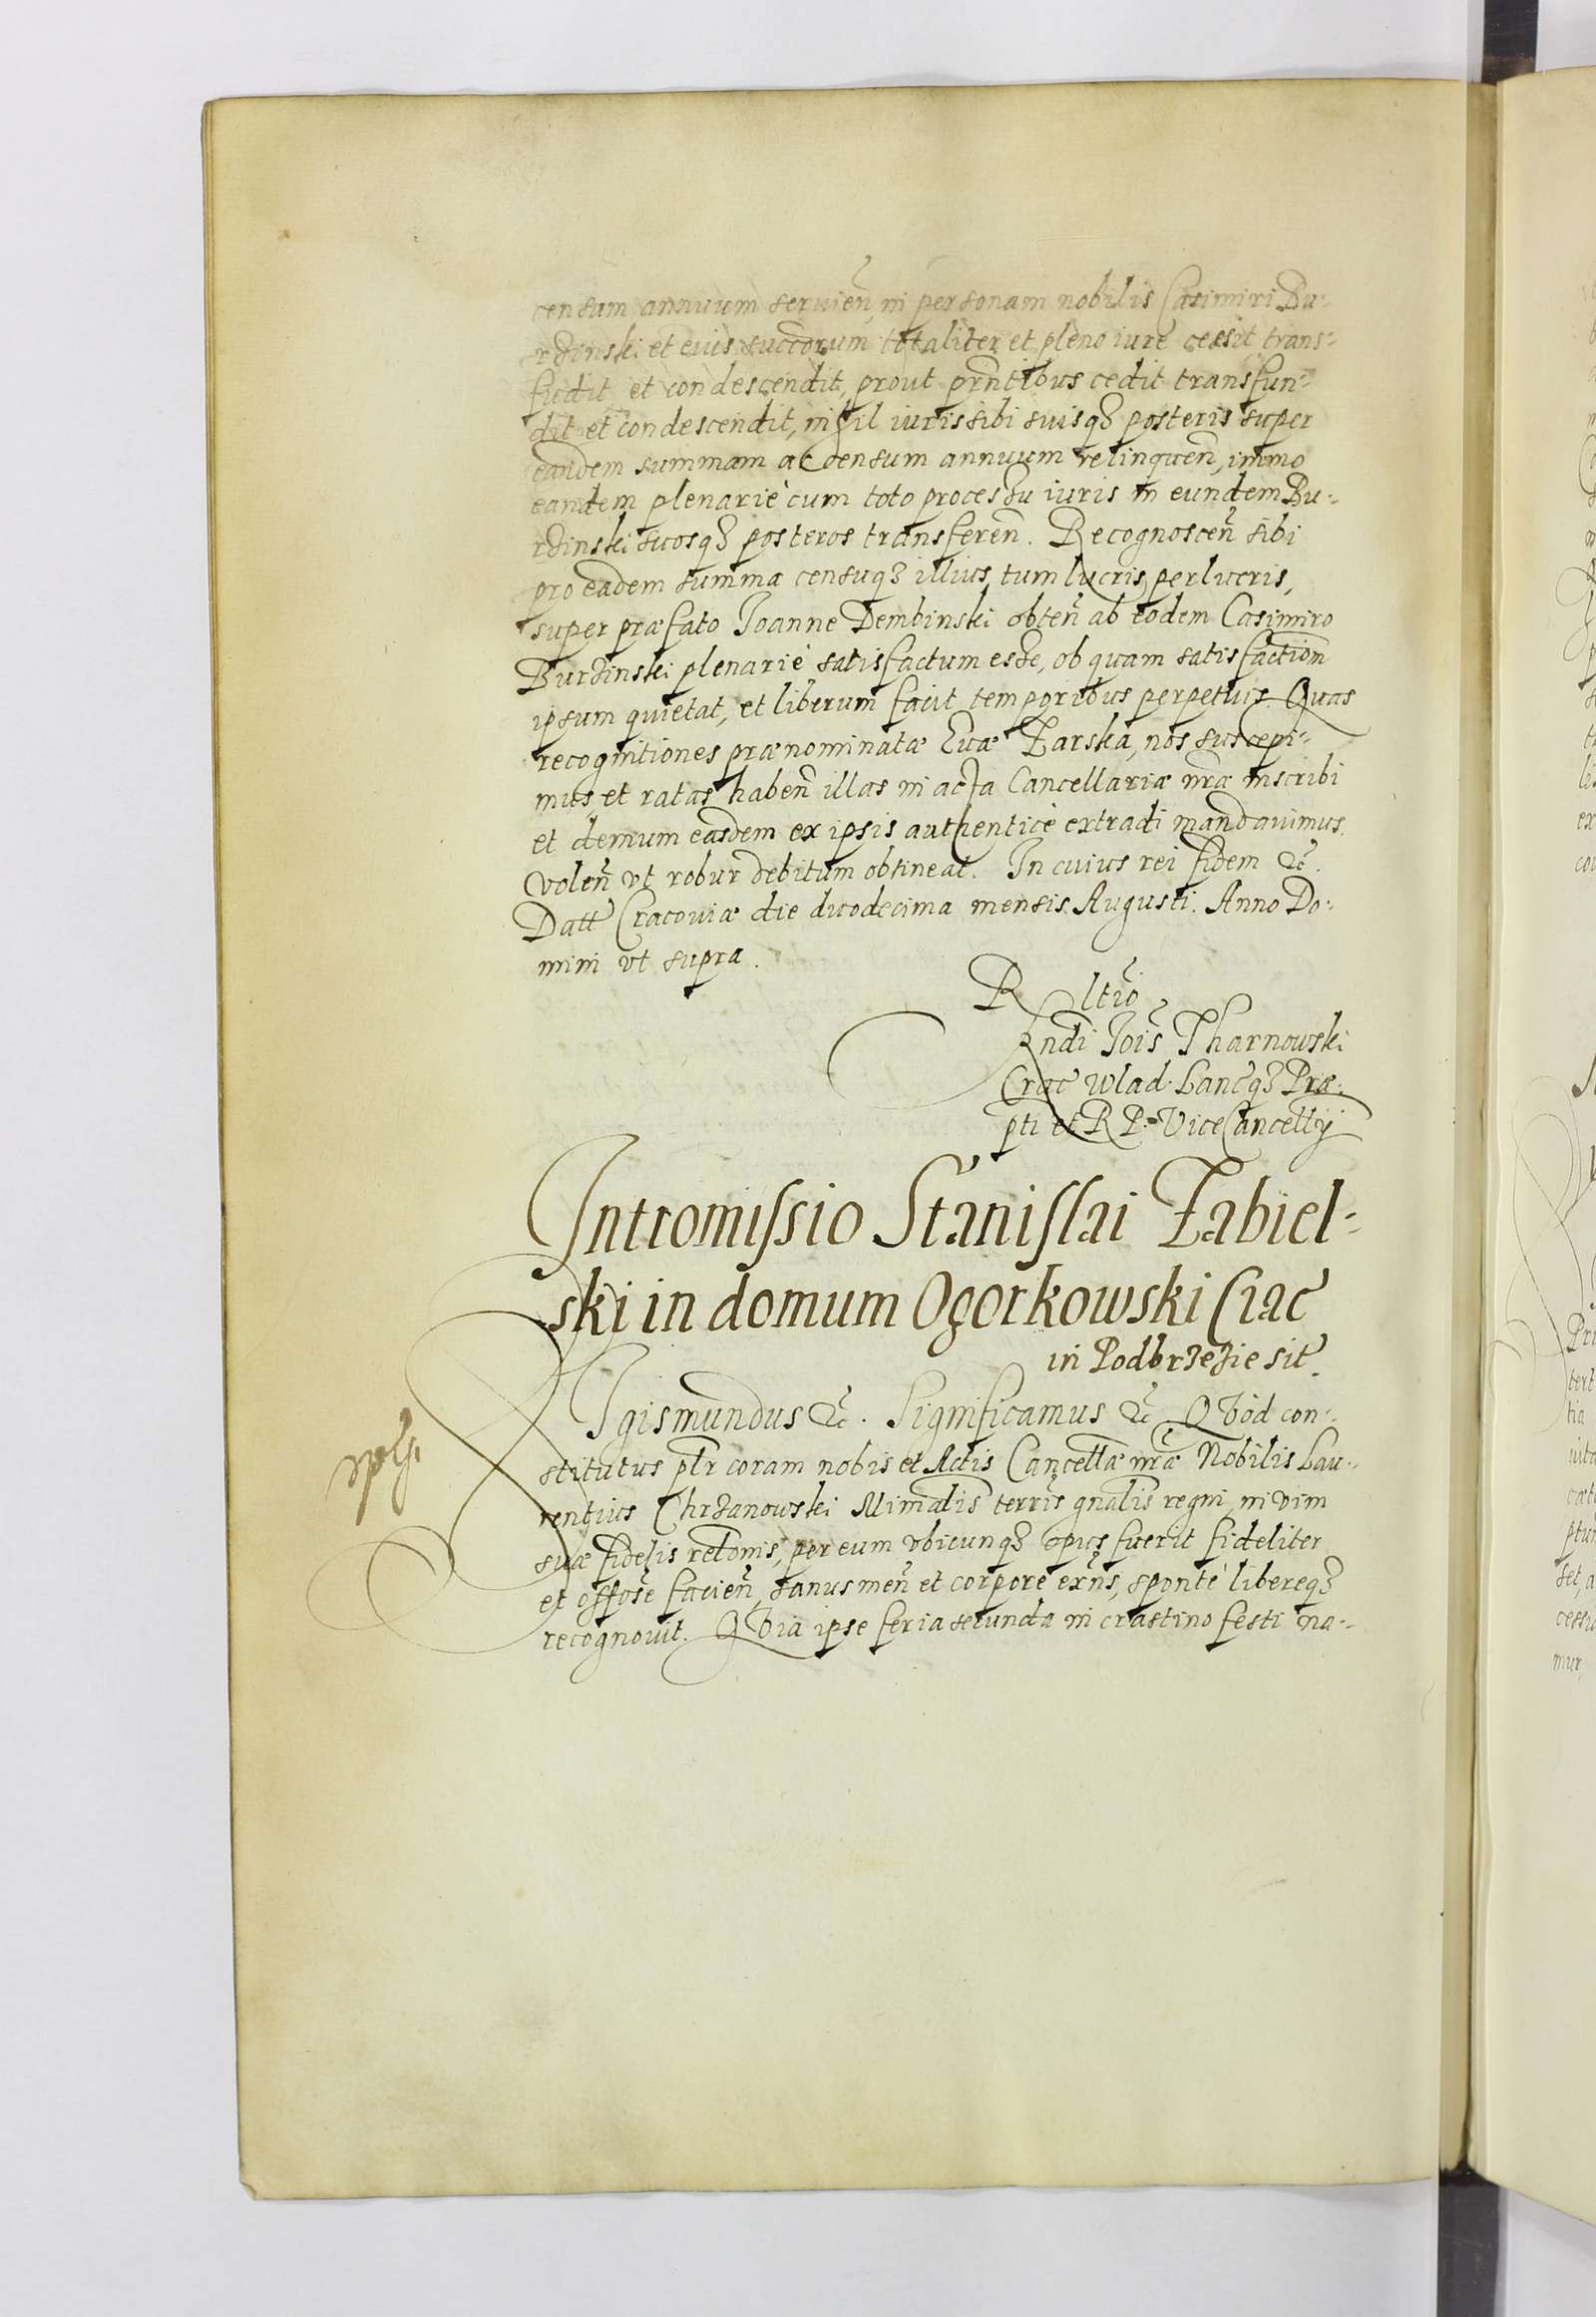 censum annuum servień, in personam nobilis Casimiri Bu-
rzinski et eius succorum totaliter et pleno iure cessit trans-
fudit et condescendit, prout prntibus cedit transfun-
dit et condescendit, nihil iuris sibi suisqз posteris super
eandem summam ac censum annuum relinqueń, immo
eandem plenariè cum toto processu iuris in eundem Bu-
rzinski suosqз posteros transfereń. Recognosceń sibi
pro eadem summa censuqз illius, tum lucris perlucris,
super præfato Joanne Dembinski obteń ab eodem Casimiro
Burzinski plenariè satisfactum esse, ob quam satisfaction
ipsum quietat, et liberum facit temporibus perpetuis. Quas
recognitiones prænominatæ Euæ Zarska, nos suscepi-
mus, et ratas habeń illas in acta Cancellariæ nræ inscribi
et demum easdem ex ipsis authenticè extradi mandauimus.
voleń vt robur debitum obtineat. In cuius rei fidem &c.
Datt Cracouiæ die duodecima mensis Augusti. Anno Do-
mini vt supra.
R ltio
Rndi Jois Tharnowski
Crac Wlad. Lancqз Præ-
pti et R P. ViceCancellÿ
Intromissio Stanislai Zabiel-
ski in domum Ogorkowski Crac
in Podbrzezie sit.
SIgismundus &c. Significamus &c Qvod con-
stitutus plr coram nobis et Actis Cancellæ nræ Nobilis Lau-
rentius Chrzanowski Minālis terrīs gnālis regni, in vim
suæ fidelis relonis, per eum vbicunqз opus fuerit fideliter
et offose facień, sanus meń et corpore exns, sponte libereqз
recognouit. Qvia ipse feria secunda in crastino festi na-